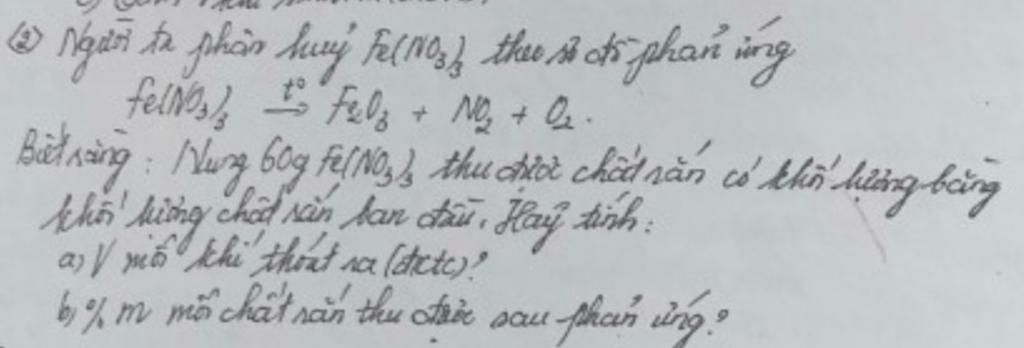 ② Người ta phân huỷ Fe(NO₃)₃ theo sơ đồ phản ứng
Fe(NO₃)₃ —t°→ Fe₂O₃ + NO₂ + O₂.
Biết rằng: Nung 60g Fe(NO₃)₃ thu được chất rắn có khối lượng bằng
khối lượng chất rắn ban đầu. Hãy tính:
a) V mỗi khí thoát ra (đktc)?
b) % m mỗi chất rắn thu được sau phản ứng?